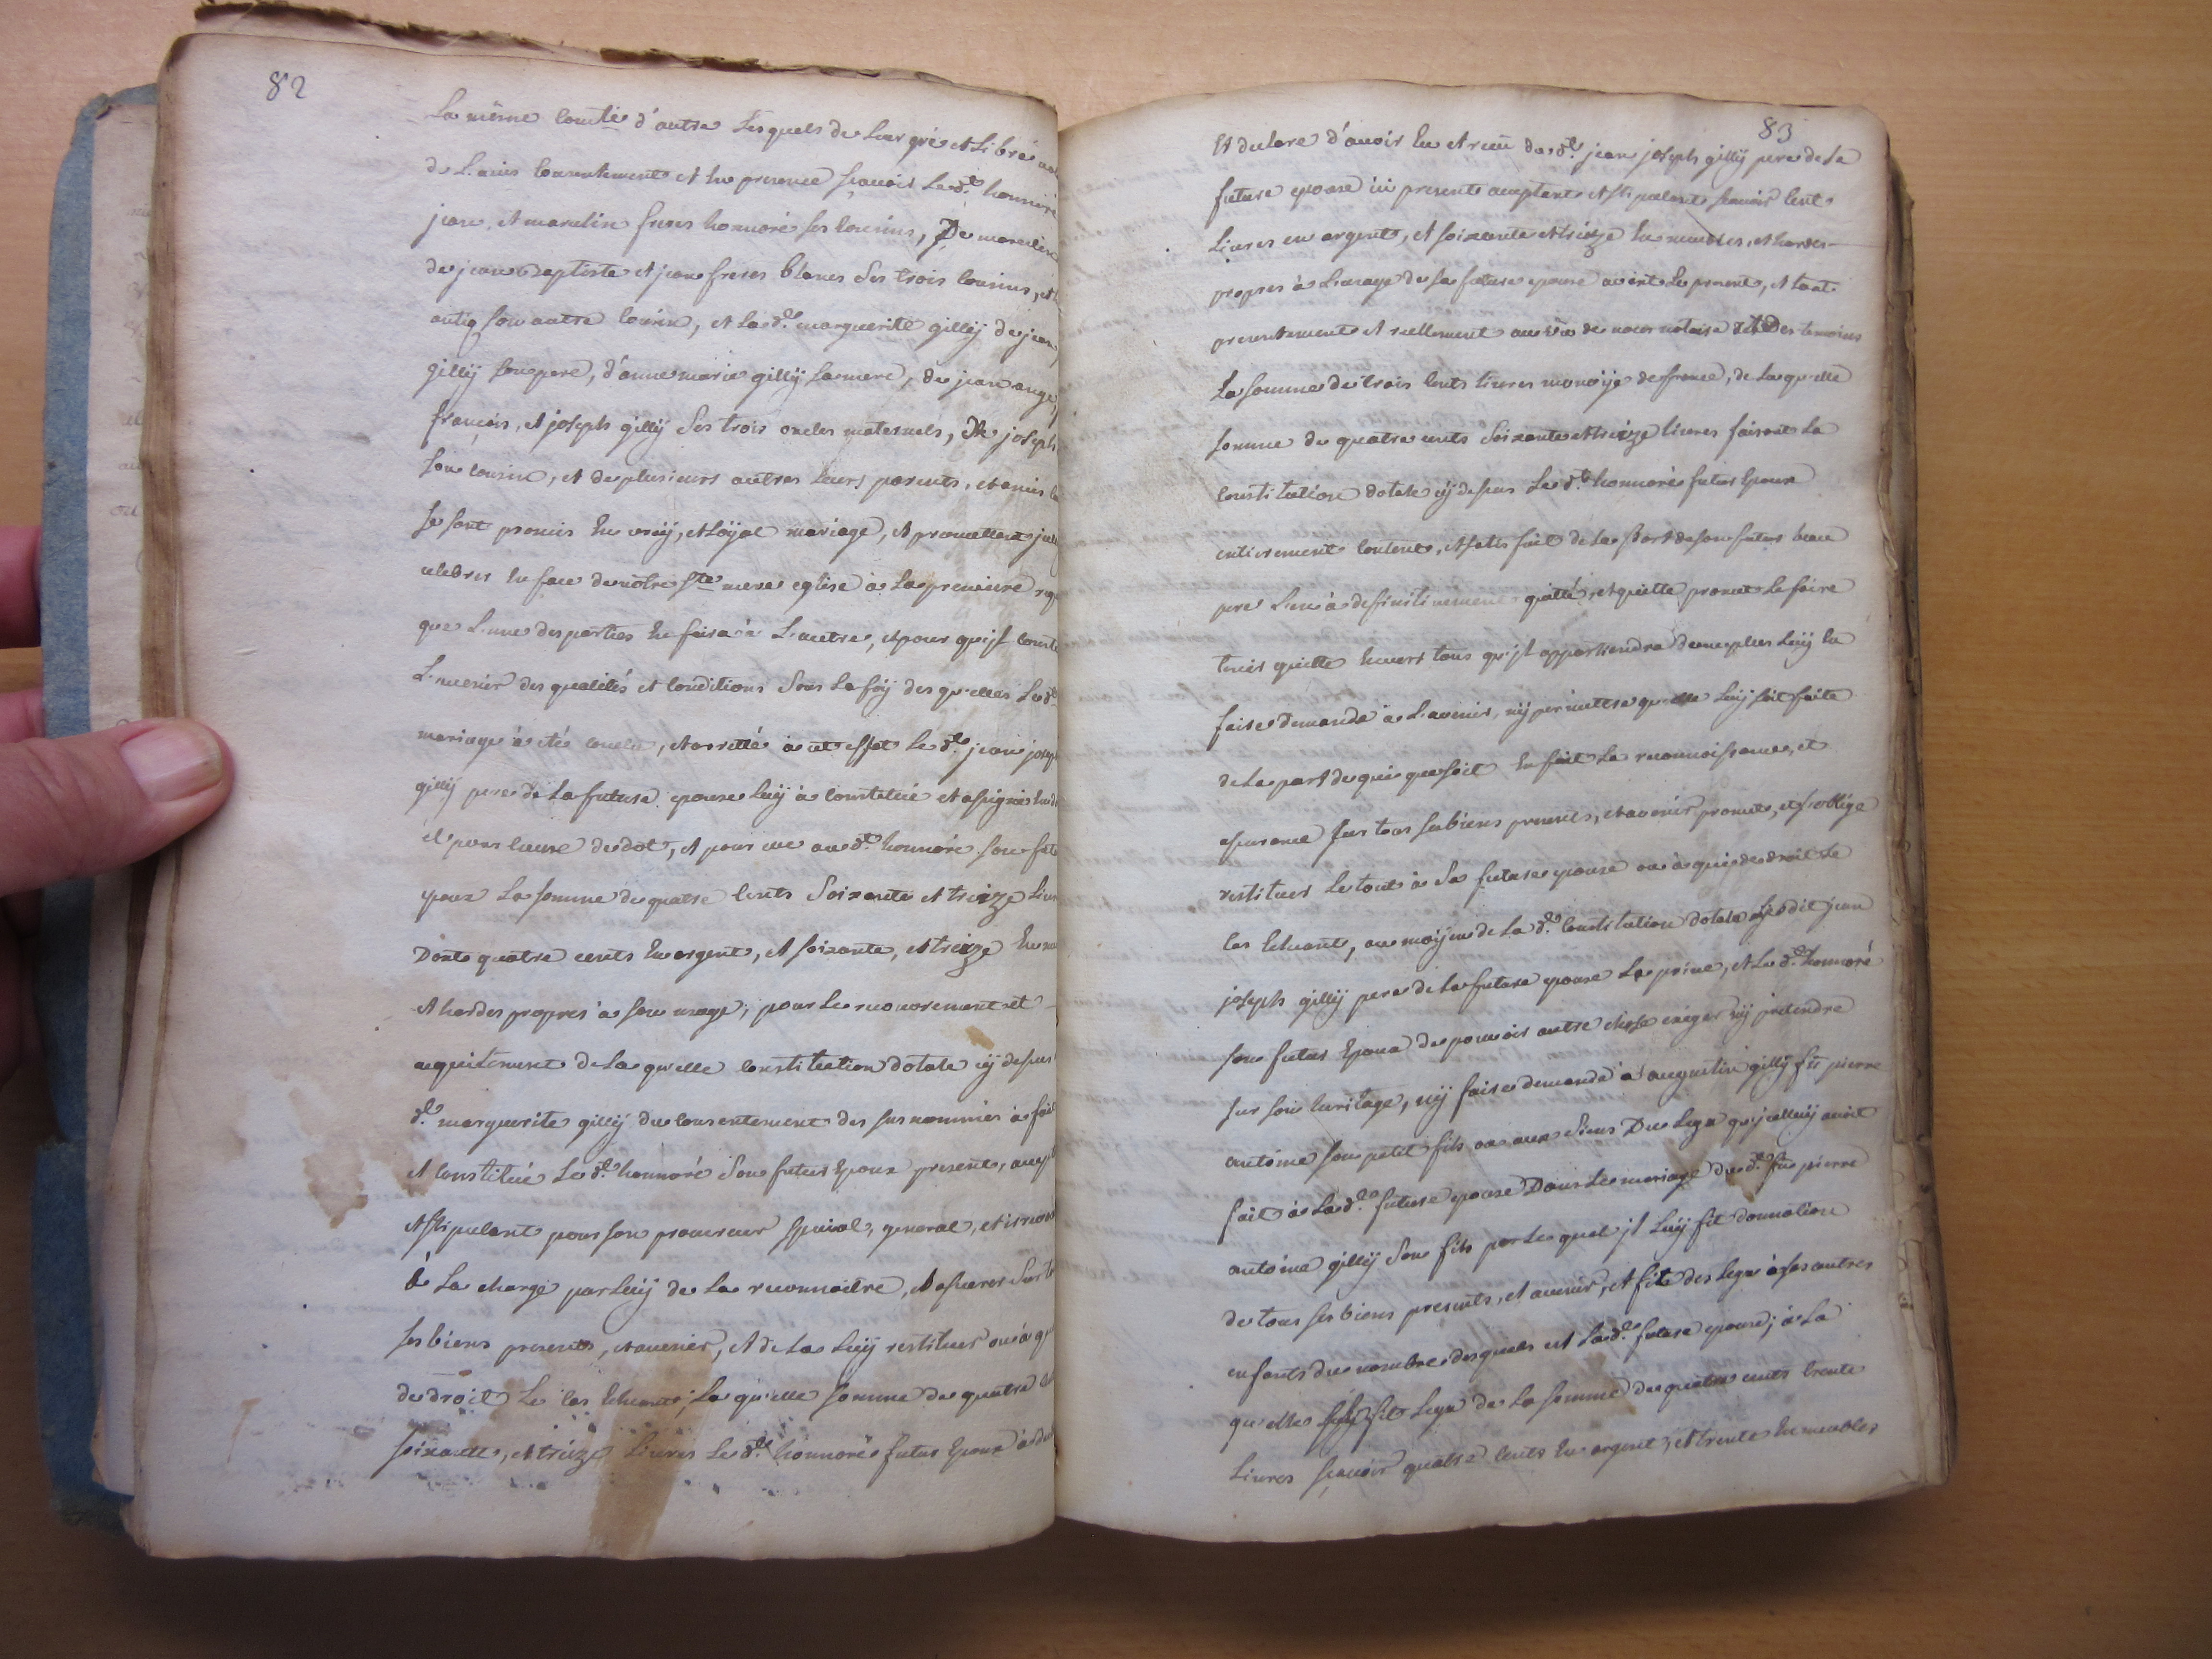 82
La même Comté d'autre Lesquels de Leur gré et Libre
de L'avis Consentement et En presence sçavoir Le d.t honnoré
jean, et marcelin freres honnoré ses Cousins, De marcelin
de jean baptiste et jean freres blancs ses trois Cousins,
son autre Cousin, et La d.e marguerite gillÿ de jean
gillÿ son pere, d'anne marie gillÿ sa mere, de jean ange,
françois, et joseph gillÿ ses trois oncles maternels, De joseph
son Cousin, et de plusieurs autres Leurs parents, et amis
se sont promis En vraÿ, et Loÿal mariage, et promettent
celebrer En face de nôtre S.te mere eglise à La premiere
que L'une des parties En faira à L'autre, et pour qu'jl Conste
L'avenir des qualités et Conditions sous La foÿ des qu'elles Le d.t
mariage à eté Conclu, et arretté à cet effet Le d.t jean joseph
gillÿ pere de La future epouse Luÿ à Constitué et assigné
et pour Cause de dot, et pour au d.t honnoré son futur
epoux La somme de quatre Cents soixante et treize Livres
Dont quatre cents En argent, et soixante, et treize En
et hardes propres à son usage; pour Le recouvrement et
acquitement de La qu'elle Constitution dotale cÿ dessus
d.e marguerite gillÿ du Consentement des sus nommés à fait
et Constitué Le d.t honnoré son futur Epoux present,
et stipulant pour son procureur special, general, et
à La charge par Luÿ de La reconnoitre, et assurer sur
ses biens presents, et avenir, et de La Luÿ restituer ou à
de droit Le Cas Echeant; La qu'elle somme de quatre
soixante, et treize Livres Le d.t honnoré futur Epoux à
83
Et declare d'avoir Eu et receu du d.t jean joseph gillÿ pere de La
future epouse ici present acceptant et stipulant sçavoir Cent
Livres en argent, et soixante et treize En meubles, et hardes
propres à L'usage de sa future epouse avant Le present, et tout
presentement et reellement au veu de nous notaire et Des temoins
La somme de trois Cents livres monoÿe de france, de La qu'elle
somme de quatre cents soixante et treize livres faisant La
Constitution dotale cÿ dessus Le d.t honnoré futur Epoux
entierement Content, et satisfait de La part de son futur beau
pere L'en à definitivement quitté, et quitte promet Le faire
tenir quitte Envers tous qu'jl appartiendra de ne plus Luÿ En
faire Demande à L'avenir, nÿ permettre qu'elle Luÿ soit faite
de La part de qui que soit En fait La reconnoissance, et
assurance sur tous ses biens presents, et avenir promet, et s'obligé
restituer Le tout à sa future epouse ou à qui de droit Le
Cas Echeant, au moÿen de La d.e Constitution dotale Le dit jean
joseph gillÿ pere de La future epouse La prive, et Le d.t honnoré
son futur Epoux de pouvoir autre chose exiger nÿ pretendre
sur son heritage, nÿ faire demande à augustin gillÿ feu pierre
antoine son petit fils ou aux siens Du Legat qu'jcelluÿ avoit
fait à La d.e future epouse Dans Le mariage du d.t feu pierre
antoine gillÿ son fils par Le quel jl Luÿ fit donnation
de tous ses biens presents, et avenir, et fit des Legats à ses autres
enfants du nombre desquels est La d.e future epouse; à La
qu'elle fit Legat de La somme de quatre cents trente
Livres sçavoir quatre Cents En argent, et trente En meubles